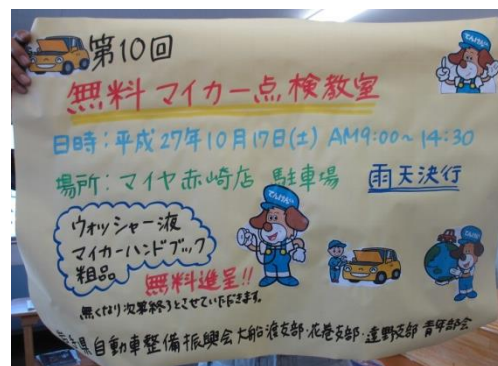 第10回
無料 マイカー点検教室
日時:平成27年10月17日(土) AM9:00~14:30
場所:マイヤ赤崎店 駐車場 雨天決行
ウォッシャー液
マイカーハンドブック
粗品
無料進呈!!
無くなり次第終了とさせていただきます。
県自動車整備振興会 大船渡支部・花巻支部・遠野支部 青年部会